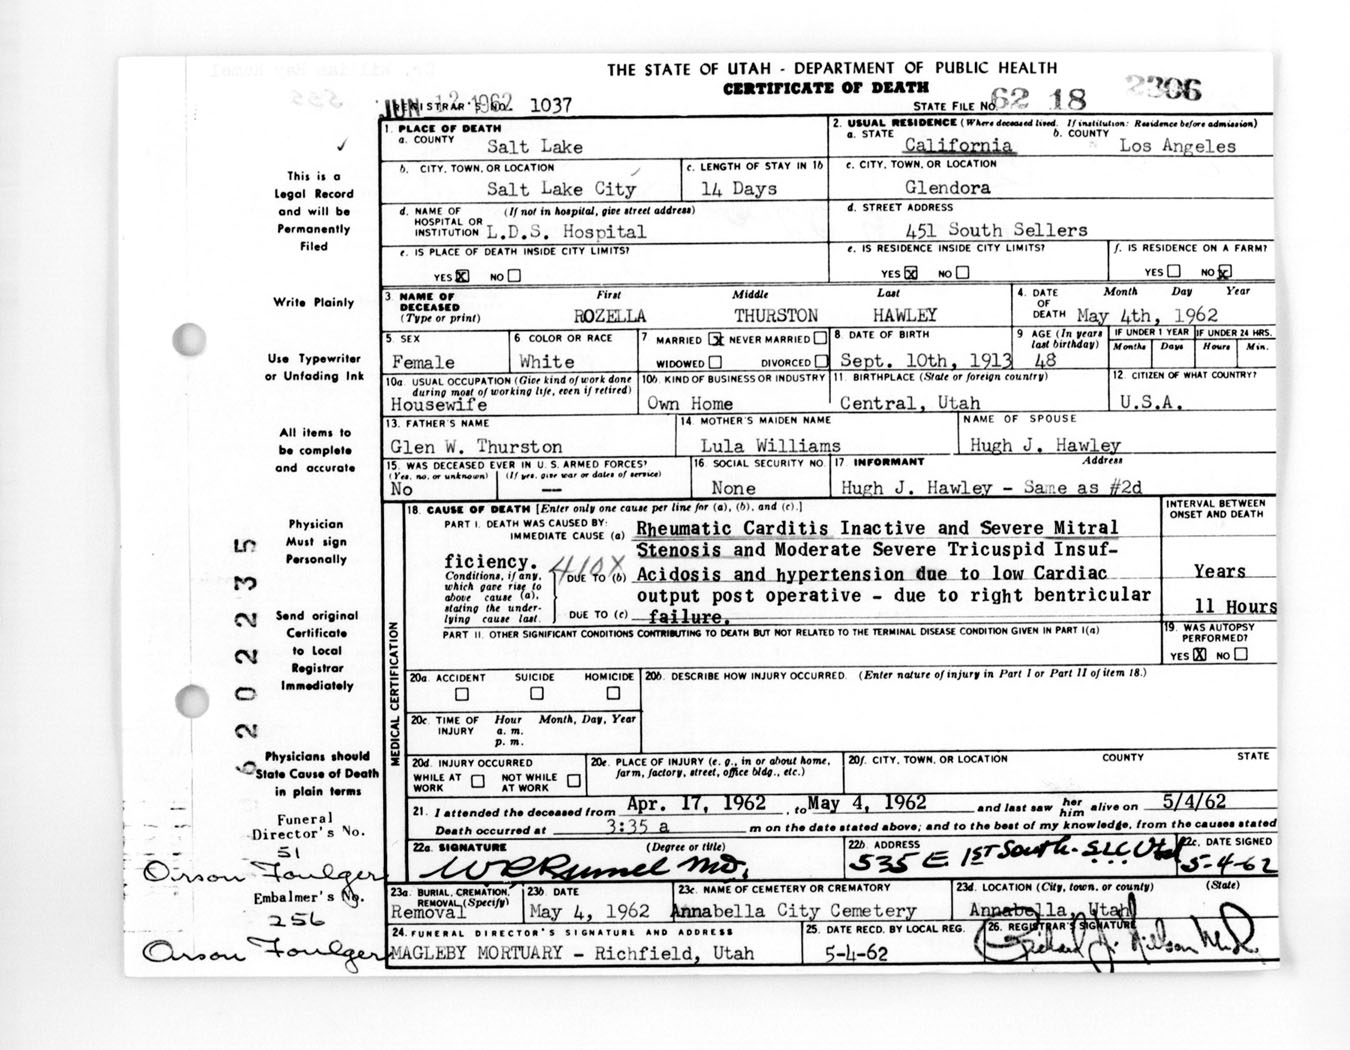 THE STATE OF UTAH - DEPARTMENT OF PUBLIC HEALTH
CERTIFICATE OF DEATH
JUN 12 1962
REGISTRAR'S NO. 1037
STATE FILE NO. 62 18 2306
1. PLACE OF DEATH
a. COUNTY Salt Lake
2. USUAL RESIDENCE (Where deceased lived. If institution: Residence before admission)
a. STATE California b. COUNTY Los Angeles
b. CITY, TOWN, OR LOCATION Salt Lake City
c. LENGTH OF STAY IN 1b 14 Days
c. CITY, TOWN, OR LOCATION Glendora
d. NAME OF HOSPITAL OR INSTITUTION (If not in hospital, give street address) L.D.S. Hospital
d. STREET ADDRESS 451 South Sellers
e. IS PLACE OF DEATH INSIDE CITY LIMITS? YES X NO
e. IS RESIDENCE INSIDE CITY LIMITS? YES X NO
f. IS RESIDENCE ON A FARM? YES NO X
3. NAME OF DECEASED (Type or print) First Middle Last
ROZELLA THURSTON HAWLEY
4. DATE OF DEATH Month Day Year
May 4th, 1962
5. SEX Female
6 COLOR OR RACE White
7 MARRIED X NEVER MARRIED WIDOWED DIVORCED
8 DATE OF BIRTH Sept. 10th, 1913
9 AGE (In years last birthday) 48
IF UNDER 1 YEAR Months Days
IF UNDER 24 HRS. Hours Min.
10a. USUAL OCCUPATION (Give kind of work done during most of working life, even if retired) Housewife
10b. KIND OF BUSINESS OR INDUSTRY Own Home
11. BIRTHPLACE (State or foreign country) Central, Utah
12. CITIZEN OF WHAT COUNTRY? U.S.A.
13. FATHER'S NAME Glen W. Thurston
14. MOTHER'S MAIDEN NAME Lula Williams
NAME OF SPOUSE Hugh J. Hawley
15. WAS DECEASED EVER IN U.S. ARMED FORCES? (Yes, no, or unknown) (If yes, give war or dates of service)
No --
16. SOCIAL SECURITY NO. None
17 INFORMANT Address
Hugh J. Hawley - Same as #2d
18. CAUSE OF DEATH [Enter only one cause per line for (a), (b), and (c).]
INTERVAL BETWEEN ONSET AND DEATH
PART I. DEATH WAS CAUSED BY: IMMEDIATE CAUSE (a) Rheumatic Carditis Inactive and Severe Mitral
Stenosis and Moderate Severe Tricuspid Insuf-
ficiency. 410X
Conditions, if any, which gave rise to above cause (a), stating the underlying cause last.
DUE TO (b) Acidosis and hypertension due to low Cardiac Years
output post operative - due to right bentricular
DUE TO (c) failure. 11 Hours
PART II. OTHER SIGNIFICANT CONDITIONS CONTRIBUTING TO DEATH BUT NOT RELATED TO THE TERMINAL DISEASE CONDITION GIVEN IN PART I(a)
19. WAS AUTOPSY PERFORMED? YES X NO
MEDICAL CERTIFICATION
20a. ACCIDENT SUICIDE HOMICIDE
20b. DESCRIBE HOW INJURY OCCURRED. (Enter nature of injury in Part I or Part II of item 18.)
20c. TIME OF INJURY Hour Month, Day, Year
a. m.
p. m.
20d. INJURY OCCURRED
WHILE AT WORK NOT WHILE AT WORK
20e. PLACE OF INJURY (e. g., in or about home, farm, factory, street, office bldg., etc.)
20f. CITY, TOWN, OR LOCATION COUNTY STATE
21. I attended the deceased from Apr. 17, 1962, to May 4, 1962 and last saw her him alive on 5/4/62
Death occurred at 3:35 a m on the date stated above; and to the best of my knowledge, from the causes stated
22a. SIGNATURE (Degree or title)
MD.
22b. ADDRESS 535 E 1st South - SLC Utah
22c. DATE SIGNED 5-4-62
23a. BURIAL, CREMATION, REMOVAL (Specify) Removal
23b. DATE May 4, 1962
23c. NAME OF CEMETERY OR CREMATORY Annabella City Cemetery
23d. LOCATION (City, town, or county) (State) Annabella, Utah
24. FUNERAL DIRECTOR'S SIGNATURE AND ADDRESS
MAGLEBY MORTUARY - Richfield, Utah
25. DATE RECD. BY LOCAL REG. 5-4-62
26. REGISTRAR'S SIGNATURE
This is a
Legal Record
and will be
Permanently
Filed
Write Plainly
Use Typewriter
or Unfading Ink
All items to
be complete
and accurate
Physician
Must sign
Personally
Send original
Certificate
to Local
Registrar
Immediately
Physicians should
State Cause of Death
in plain terms
Funeral
Director's No.
51
Orson Foulger
Embalmer's No.
256
Orson Foulger